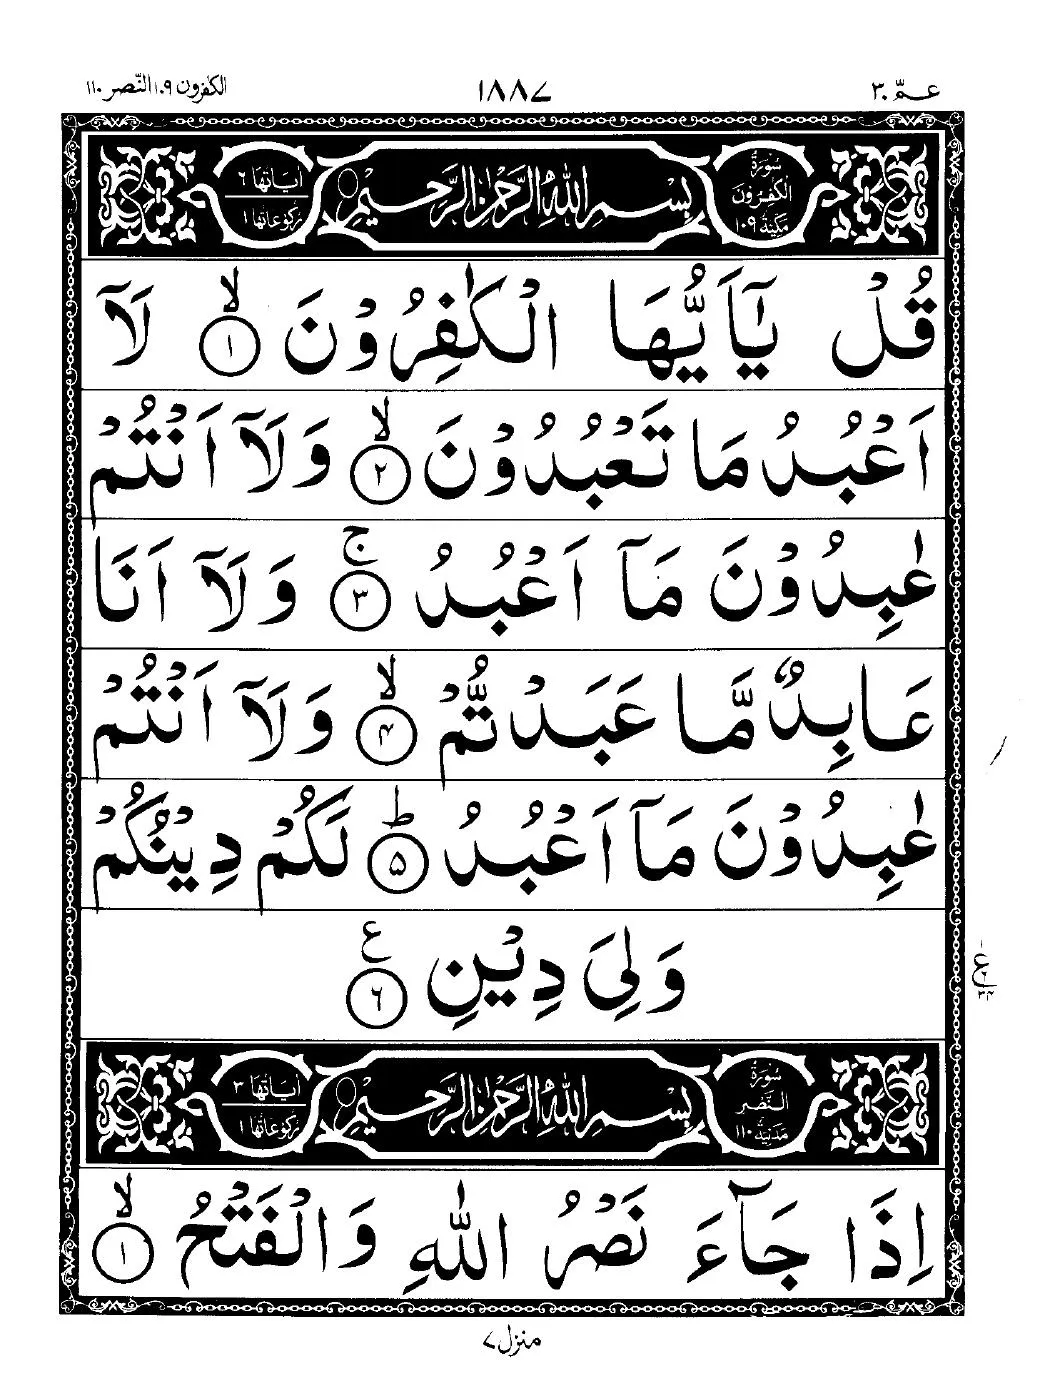 عمّ ٣٠ ١٨٨٧ الكٰفرون ١٠٩ النّصر ١١٠
سُوْرَةُ الْكٰفِرُوْنَ مَكِّيَّةٌ ١٠٩ بِسْمِ اللهِ الرَّحْمٰنِ الرَّحِيْمِ اٰيَاتُهَا ٦ رُكُوْعَاتُهَا ١
قُلْ يٰۤاَيُّهَا الْكٰفِرُوْنَ ۙ١ لَاۤ
اَعْبُدُ مَا تَعْبُدُوْنَ ۙ٢ وَلَاۤ اَنْتُمْ
عٰبِدُوْنَ مَاۤ اَعْبُدُ ۚ٣ وَلَاۤ اَنَا
عَابِدٌ مَّا عَبَدْتُّمْ ۙ۴ وَلَاۤ اَنْتُمْ
عٰبِدُوْنَ مَاۤ اَعْبُدُ ؕ۵ لَكُمْ دِيْنُكُمْ
وَلِىَ دِيْنِ ع ٦
ع
سُوْرَةُ النَّصْرِ مَدَنِيَّةٌ ١١٠ بِسْمِ اللهِ الرَّحْمٰنِ الرَّحِيْمِ اٰيَاتُهَا ٣ رُكُوْعَاتُهَا ١
اِذَا جَآءَ نَصْرُ اللّٰهِ وَالْفَتْحُ ۙ١
منزل ٧